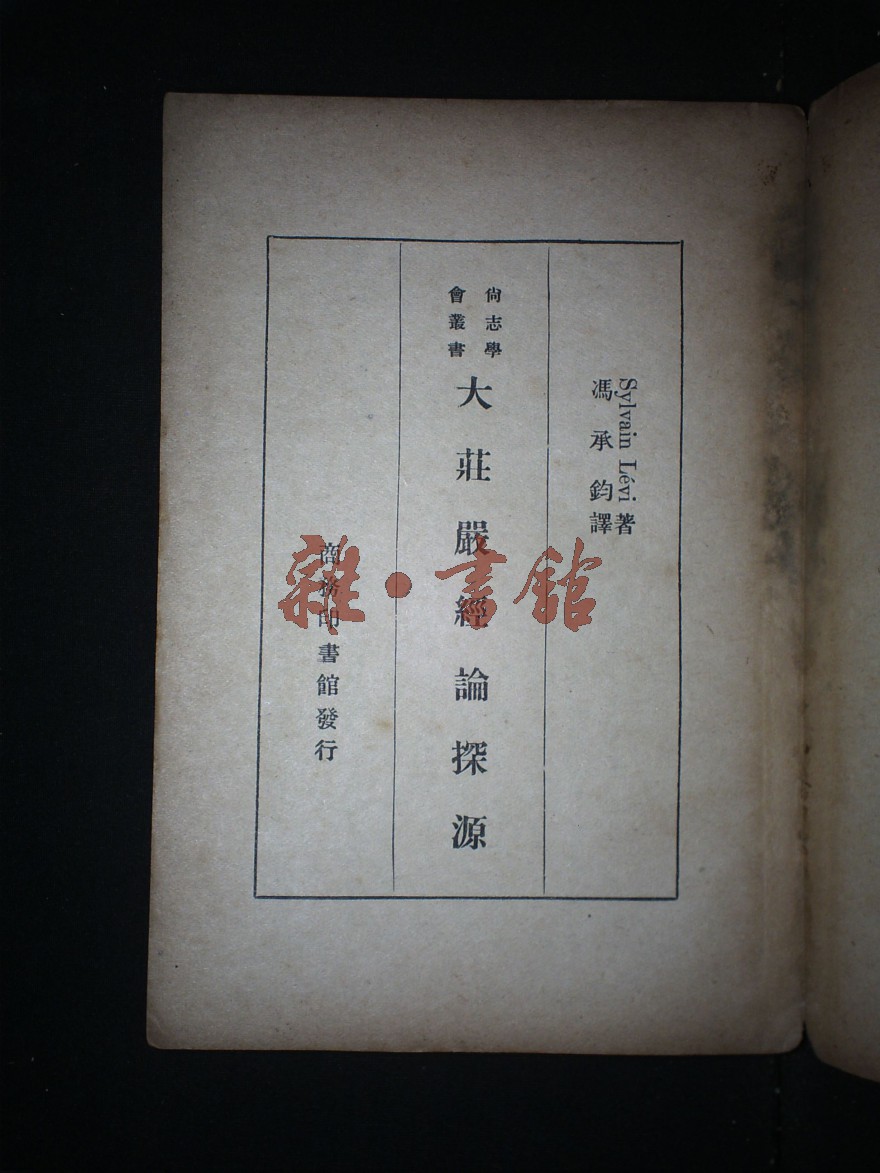 Sylvain Lévi 著
馮承鈞譯
尙志學
會叢書
大莊嚴經論探源
商務印書館發行
雜·書館